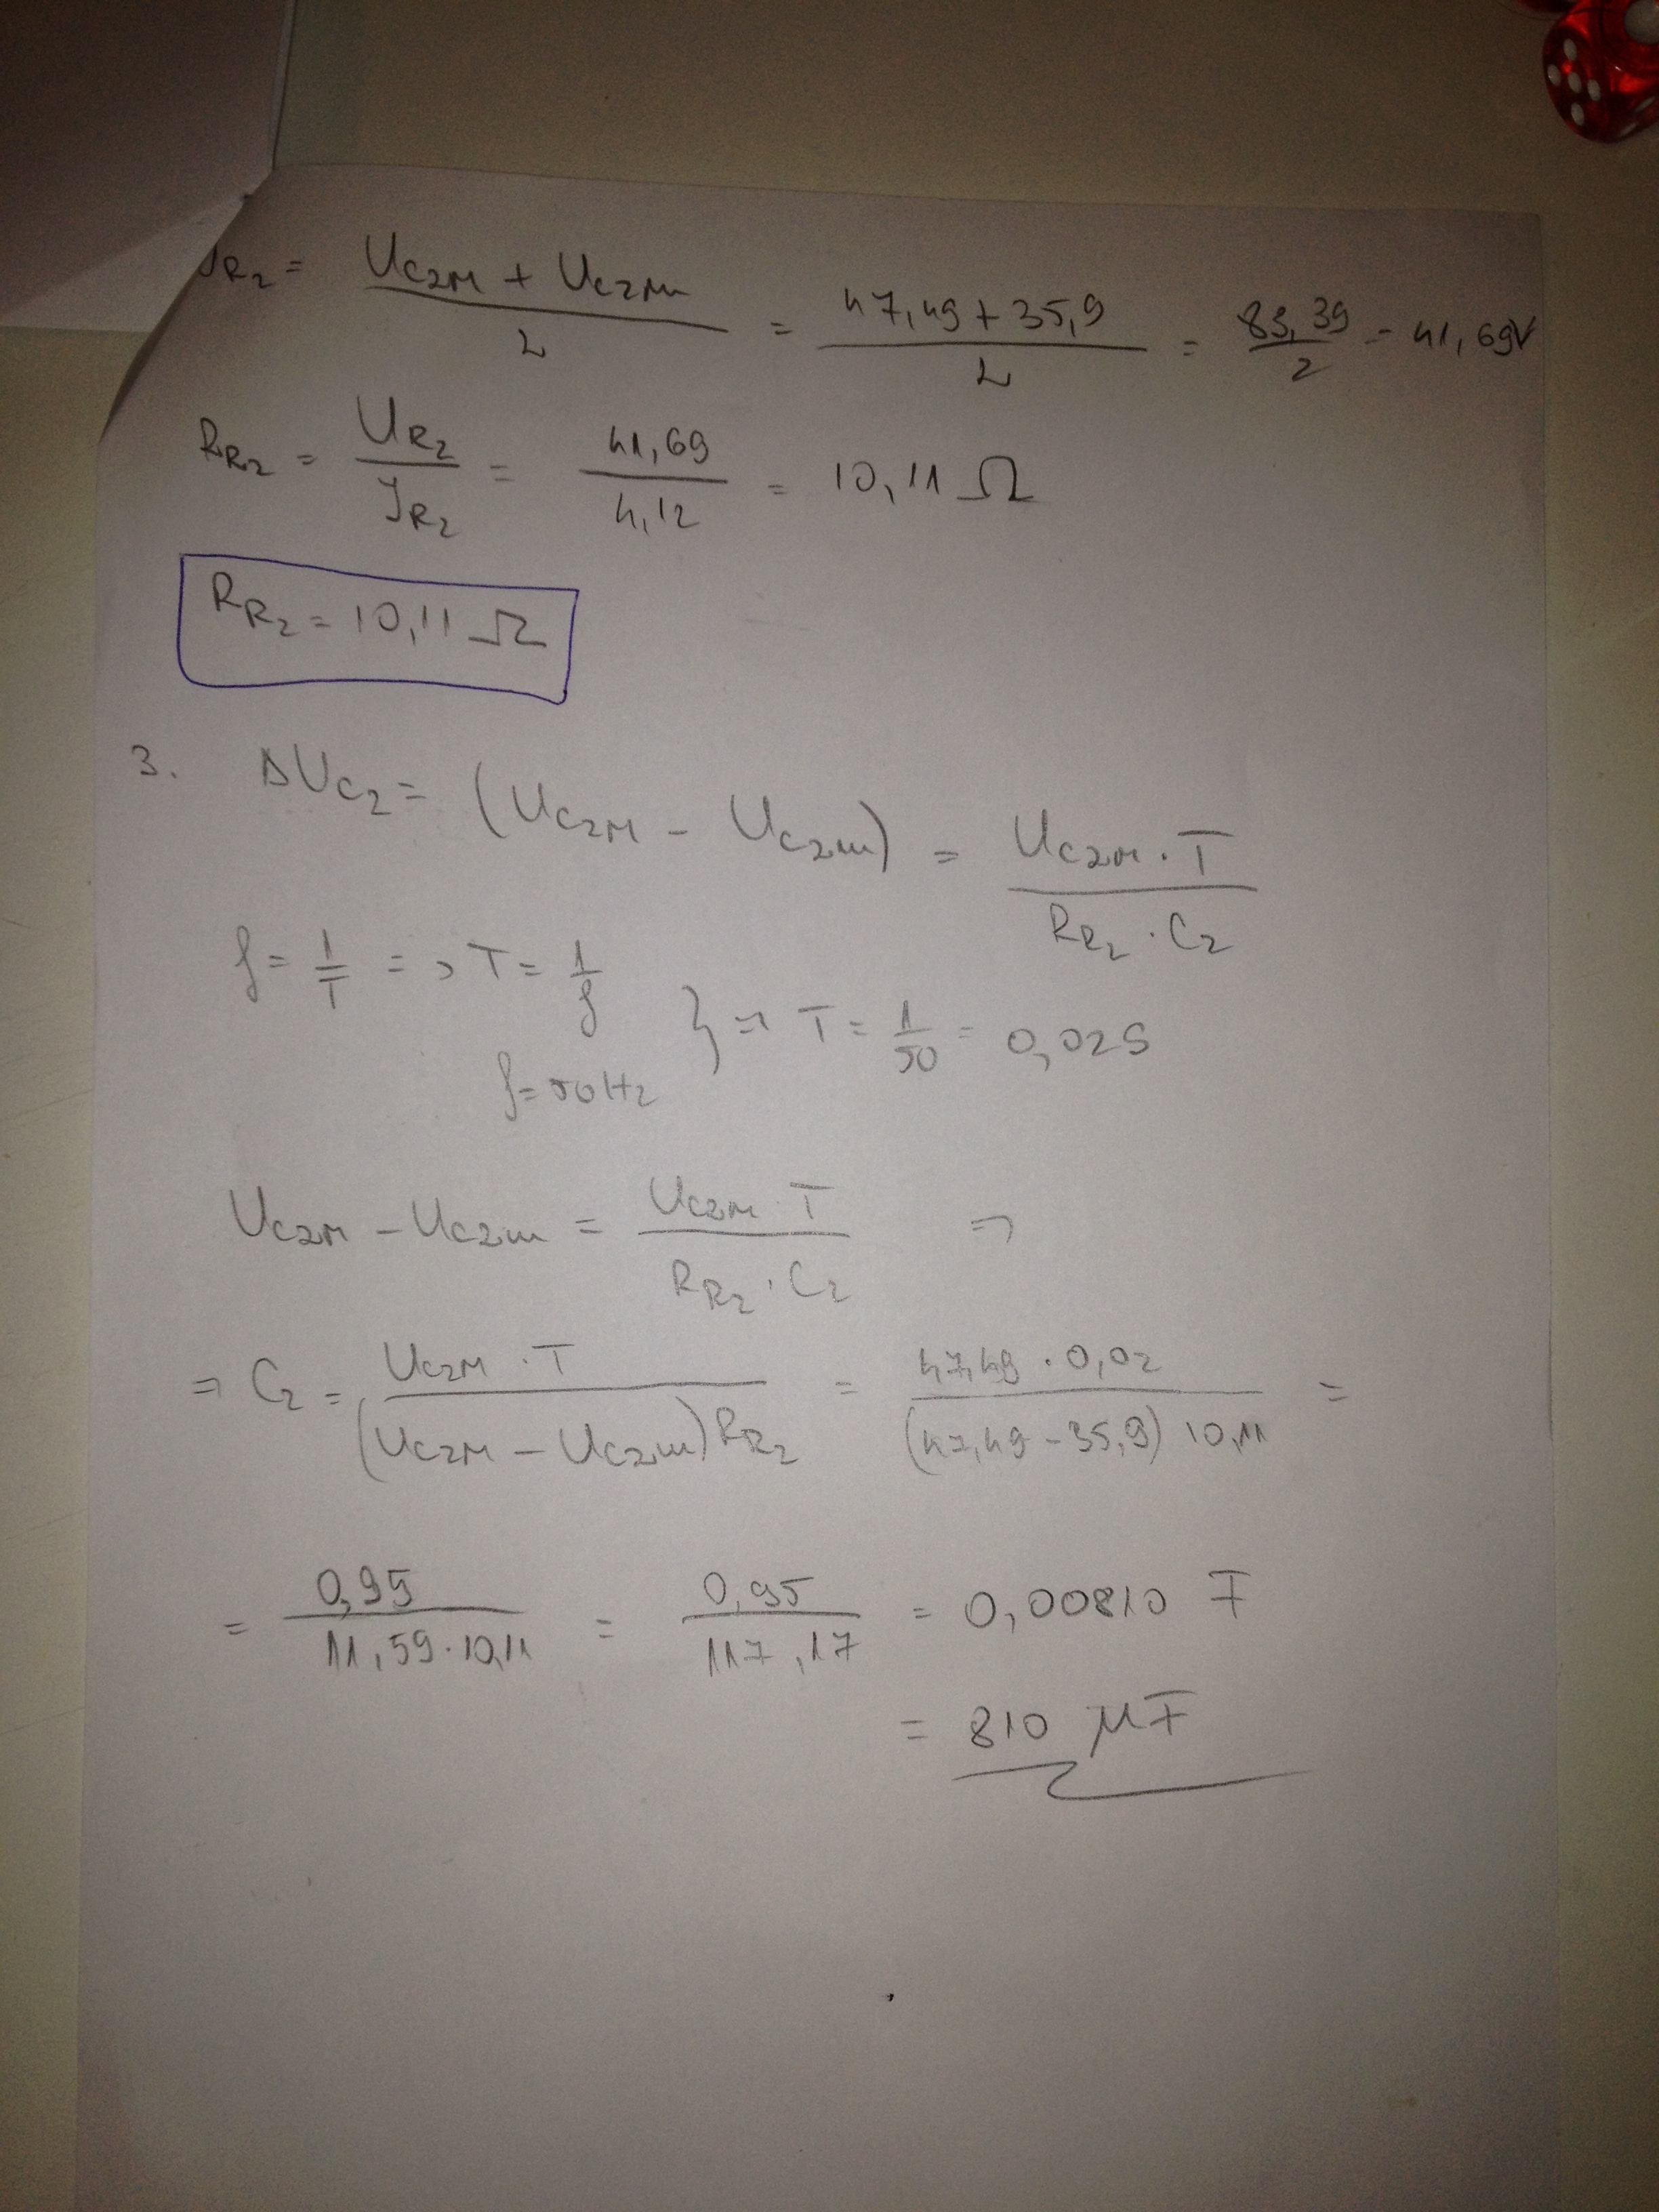 U_R₂ = (U_C2M + U_C2m) / 2 = (47,49 + 35,9) / 2 = 83,39 / 2 = 41,69V
R_R₂ = U_R₂ / J_R₂ = 41,69 / 4,12 = 10,11 Ω
R_R₂ = 10,11 Ω
3. ΔU_C₂ = (U_C2M - U_C2m) = U_C2M · T / R_R₂ · C₂
f = 1/T => T = 1/f
f = 50 Hz } => T = 1/50 = 0,02 S
U_C2M - U_C2m = U_C2M · T / R_R₂ · C₂ =>
=> C₂ = U_C2M · T / (U_C2M - U_C2m) R_R₂ = 47,49 · 0,02 / (47,49 - 35,9) 10,11 =
= 0,95 / 11,59 · 10,11 = 0,95 / 117,17 = 0,00810 F
= 810 μF